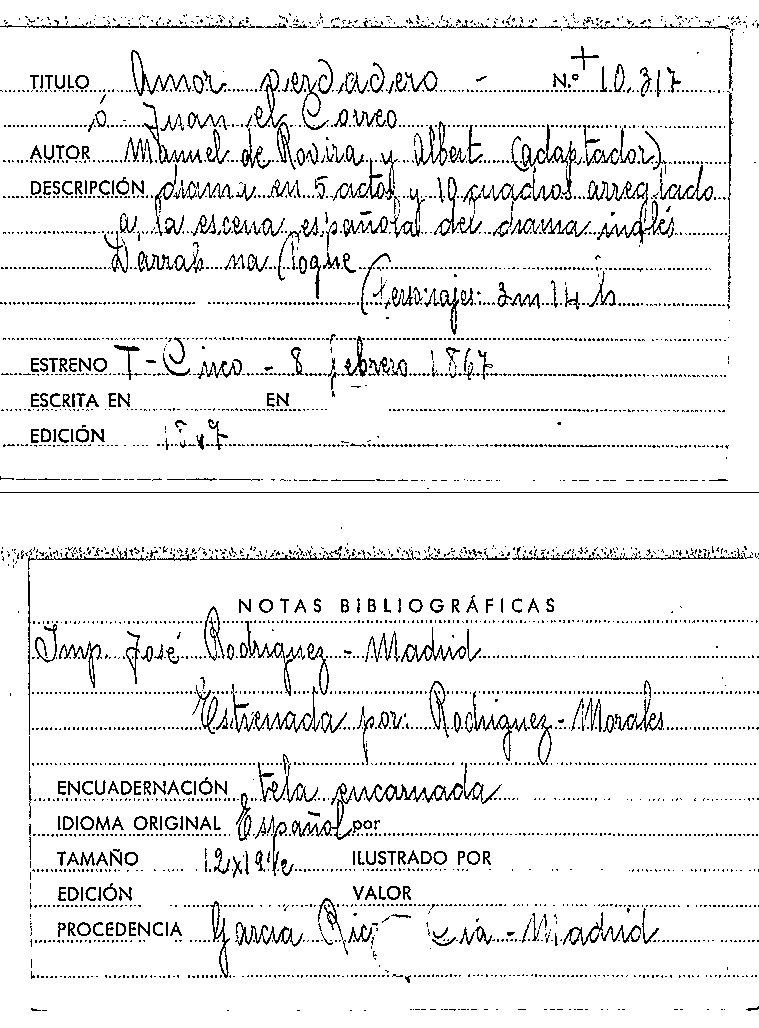 TITULO Amor verdadero - N.º + 10.317
ó Juan el Correo
AUTOR Manuel de Rovira y Albert (adaptador)
DESCRIPCIÓN drama en 5 actos y 10 cuadros arreglado
a la escena española del drama inglés
Darrah na Poghe
Personajes: 3 m 14 h
ESTRENO T - Circo - 8 febrero 1867
ESCRITA EN EN
EDICIÓN
NOTAS BIBLIOGRÁFICAS
Imp. José Rodriguez - Madrid
Estrenada por: Rodriguez - Morales
ENCUADERNACIÓN tela encarnada
IDIOMA ORIGINAL Español por
TAMAÑO ILUSTRADO POR
EDICIÓN VALOR
PROCEDENCIA García Rico Cia - Madrid